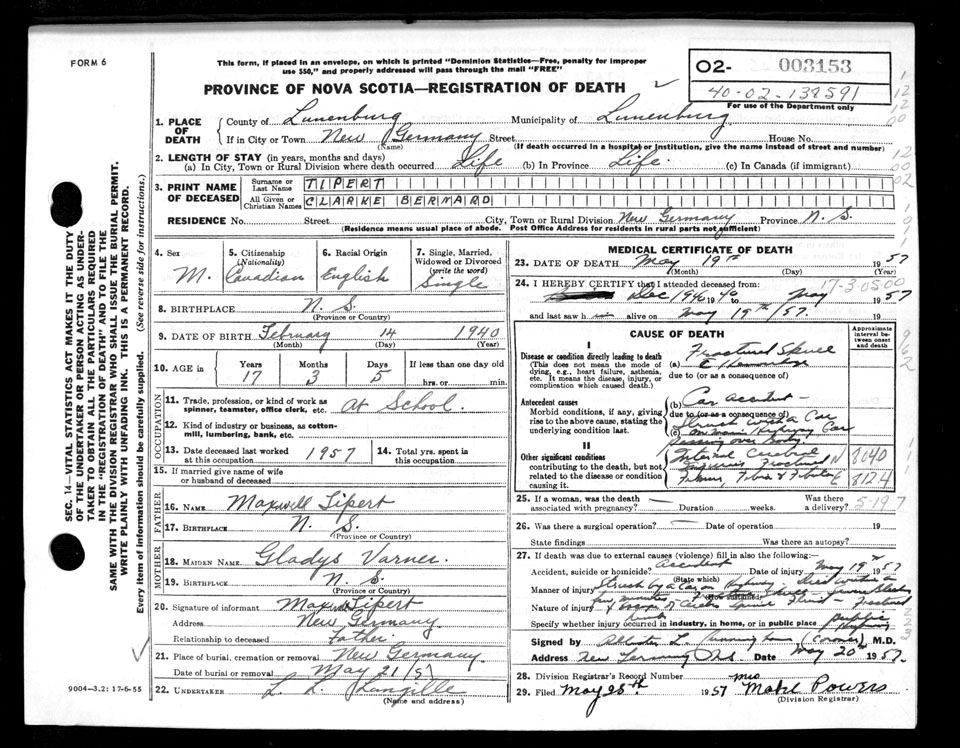 FORM 6
This form, if placed in an envelope, on which is printed "Dominion Statistics—Free, penalty for improper
use $50," and properly addressed will pass through the mail "FREE"
PROVINCE OF NOVA SCOTIA—REGISTRATION OF DEATH
02- 003153
40-02-138591
For use of the Department only
1. PLACE OF DEATH
County of Lunenburg Municipality of Lunenburg
If in City or Town New Germany Street House No.
(Name) (If death occurred in a hospital or institution, give the name instead of street and number)
2. LENGTH OF STAY (in years, months and days)
(a) In City, Town or Rural Division where death occurred Life (b) In Province Life. (c) In Canada (if immigrant)
3. PRINT NAME OF DECEASED
Surname or Last Name TIPERT
All Given or Christian Names CLARKE BERMARD
RESIDENCE No. Street City, Town or Rural Division New Germany Province N.S.
(Residence means usual place of abode. Post Office Address for residents in rural parts not sufficient)
4. Sex M.
5. Citizenship (Nationality) Canadian
6. Racial Origin English
7. Single, Married, Widowed or Divorced (write the word) Single
8. BIRTHPLACE N. S
(Province or Country)
9. DATE OF BIRTH February 14 1940
(Month) (Day) (Year)
10. AGE in Years 17 Months 3 Days 5 If less than one day hrs. or min.
OCCUPATION
11. Trade, profession, or kind of work as spinner, teamster, office clerk, etc. at School.
12. Kind of industry or business, as cotton-mill, lumbering, bank, etc.
13. Date deceased last worked at this occupation 1957 14. Total yrs. spent in this occupation
15. If married give name of wife or husband of deceased
FATHER
16. NAME Maxwell Tipert
17. BIRTHPLACE N. S.
(Province or Country)
MOTHER
18. MAIDEN NAME Gladys Varner.
19. BIRTHPLACE N. S
(Province or Country)
20. Signature of informant Maxwell Tipert
Address New Germany
Relationship to deceased Father.
21. Place of burial, cremation or removal New Germany
Date of burial or removal May 21/57
22. UNDERTAKER L. L. Langille
(Name and address)
9004-3.2: 17-6-55
MEDICAL CERTIFICATE OF DEATH
23. DATE OF DEATH May 19th 1957
(Month) (Day) (Year)
17-3 0500
24. I HEREBY CERTIFY that I attended deceased from:
Dec 1946 1946 May 1957
and last saw h alive on May 19th/57.
CAUSE OF DEATH
Approximate interval between onset and death
I
Disease or condition directly leading to death
(This does not mean the mode of dying, e.g., heart failure, asthenia, etc. It means the disease, injury, or complication which caused death.)
(a) Fractured Skull
due to (or as a consequence of)
Antecedent causes
Morbid conditions, if any, giving rise to the above cause, stating the underlying condition last.
(b) Car accident -
due to (or as a consequence of)
Struck with a Car
(c) on main Highway Car
Passing over Body.
II
Other significant conditions
contributing to the death, but not related to the disease or condition causing it.
Internal Cerebral
N 8040
E 8124
25. If a woman, was the death associated with pregnancy? Duration weeks. Was there a delivery?
5-19 7
26. Was there a surgical operation? Date of operation 19
State findings Was there an autopsy?
27. If death was due to external causes (violence) fill in also the following:
Accident, suicide or homicide? Accident Date of injury May 19 1957
(State which)
Manner of injury Struck by a Car on Highway.
(How sustained)
Nature of injury
Specify whether injury occurred in industry, in home, or in public place Public Highway
Signed by (Coroner) M.D.
Address New Germany N.S. Date May 20th 1957.
28. Division Registrar's Record Number
29. Filed May 28th 1957 Mrs Mabel Powers
(Division Registrar)
SEC. 14—VITAL STATISTICS ACT MAKES IT THE DUTY
OF THE UNDERTAKER OR PERSON ACTING AS UNDER-
TAKER TO OBTAIN ALL THE PARTICULARS REQUIRED
IN THE "REGISTRATION OF DEATH" AND TO FILE THE
SAME WITH THE DIVISION REGISTRAR WHO SHALL ISSUE THE BURIAL PERMIT.
WRITE PLAINLY WITH UNFADING INK. THIS IS A PERMANENT RECORD.
Every item of information should be carefully supplied. (See reverse side for instructions.)